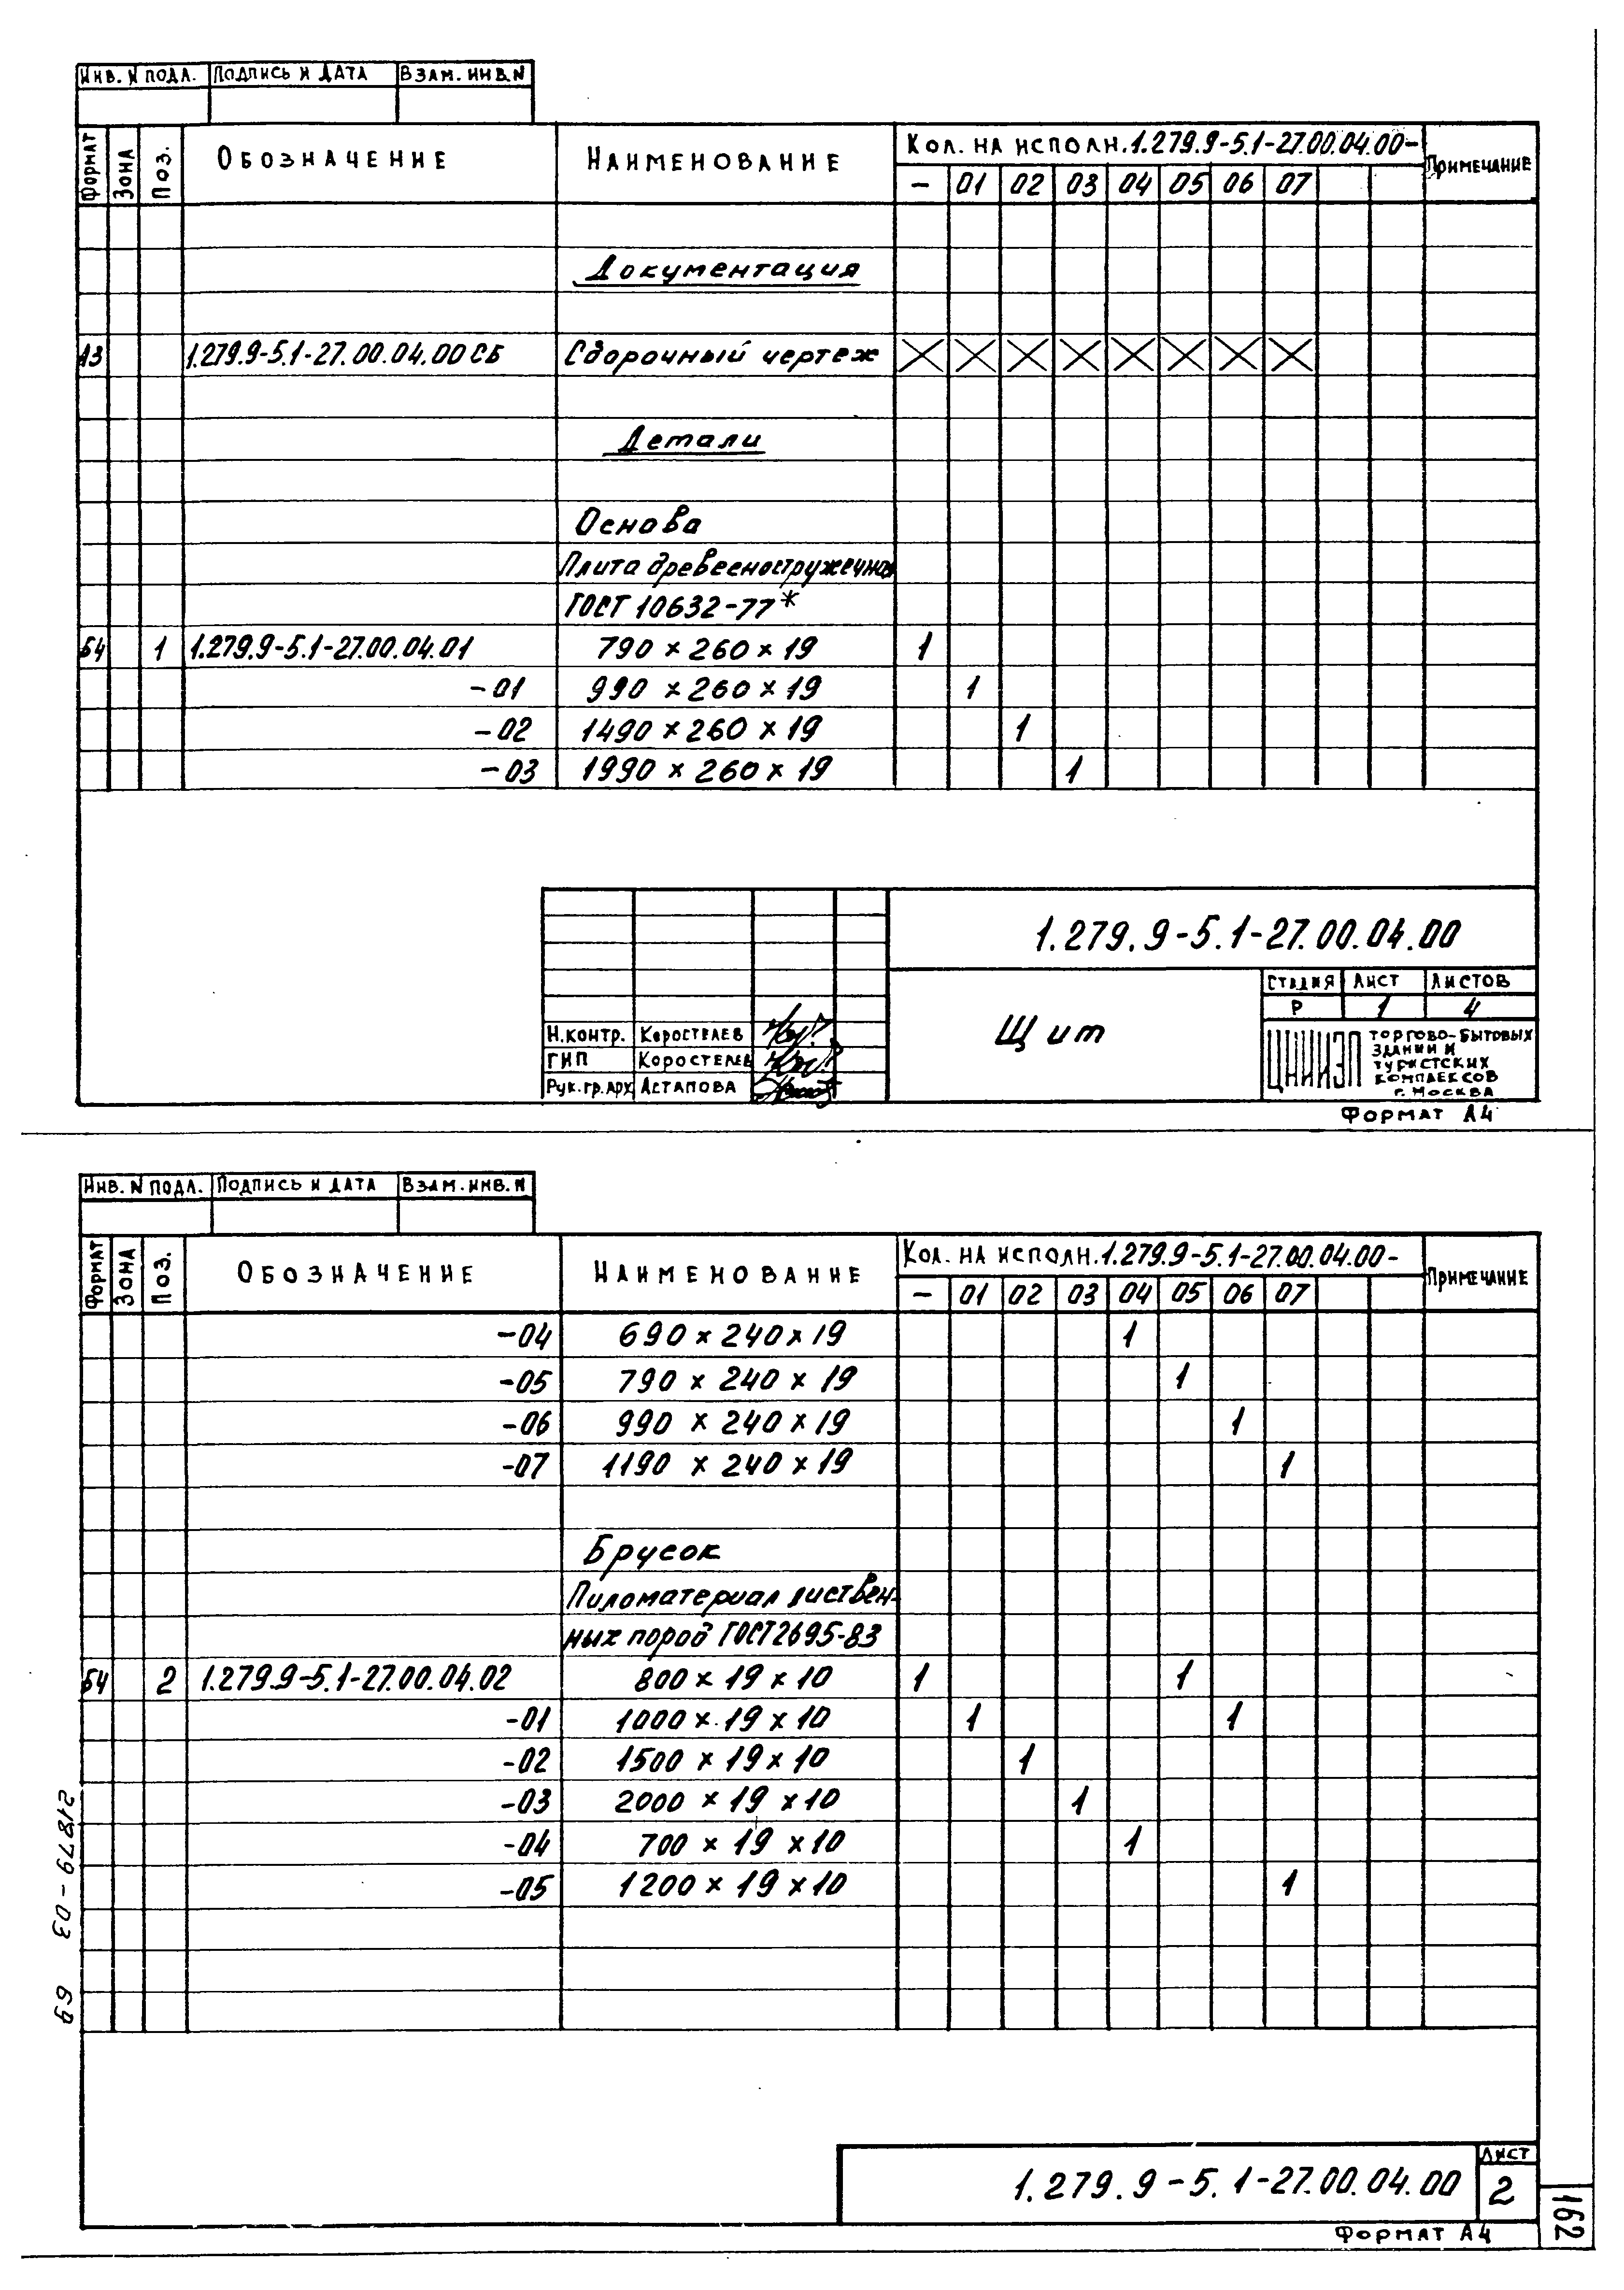 Инв. N подл. Подпись и дата Взам. инв. N
Формат Зона Поз. Обозначение Наименование Кол. на исполн. 1.279.9-5.1-27.00.04.00- Примечание
- 01 02 03 04 05 06 07
Документация
А3 1.279.9-5.1-27.00.04.00 СБ Сборочный чертеж X X X X X X X X
Детали
Основа
Плита древесностружечная
ГОСТ 10632-77*
Б4 1 1.279.9-5.1-27.00.04.01 790 x 260 x 19 1
-01 990 x 260 x 19 1
-02 1490 x 260 x 19 1
-03 1990 x 260 x 19 1
1.279.9-5.1-27.00.04.00
Стадия Лист Листов
Р 1 4
Щит
Н.контр. Коростелев
ГИП Коростелев
Рук.гр.арх Астапова
ЦНИИЭП торгово-бытовых
зданий и
туристских
комплексов
г. Москва
Формат А4
Инв. N подл. Подпись и дата Взам. инв. N
Формат Зона Поз. Обозначение Наименование Кол. на исполн. 1.279.9-5.1-27.00.04.00- Примечание
- 01 02 03 04 05 06 07
-04 690 x 240 x 19 1
-05 790 x 240 x 19 1
-06 990 x 240 x 19 1
-07 1190 x 240 x 19 1
Брусок
Пиломатериал листвен-
ных пород ГОСТ 2695-83
Б4 2 1.279.9-5.1-27.00.04.02 800 x 19 x 10 1 1
-01 1000 x 19 x 10 1 1
-02 1500 x 19 x 10 1
-03 2000 x 19 x 10 1
-04 700 x 19 x 10 1
-05 1200 x 19 x 10 1
21879-03 69
1.279.9-5.1-27.00.04.00
Лист
2
Формат А4
162